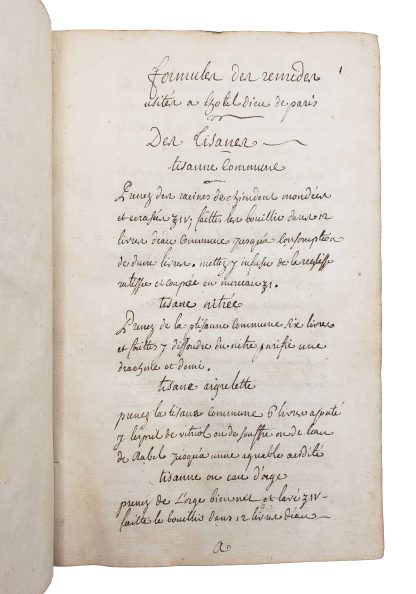 formules des remedes 1
usités a L'hotel dieu de paris
Des Tisanes
tisanne Commune
Prenez des racines de chiendent mondées
et ecrasées ʒIV, faittes les bouillir dans 12
livres d'eau Commune jusqu'a Consomption
de deux livres. mettez y infuser de la reglisse
ratissée et coupée en morceau ʒI.
tisane nitrée
Prenez de la ptisanne commune six livres
et faittes y dissoudre du nitre purifié une
drachme et demi.
tisane aigrelette
prenez la tisane commune 6 livres ajouté
y l'esprit de vitriol ou de souffre ou de l'eau
de Rabel jusqu'a une agreable acidité
tisanne ou eau d'orge
prenez de L'orge bien net et lavé ʒIV
faitte le bouillir dans 12 livres d'eau
a